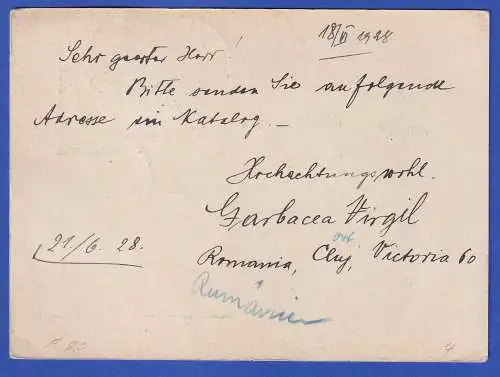 18/VI 1928
Sehr geerter Herr!
Bitte senden Sie an folgende
Adresse ein Katalog. –
Hochachtungswohl.
Garbacea Virgil
Romania, Cluj, Victoria 60
21/6. 28.
Rumänien